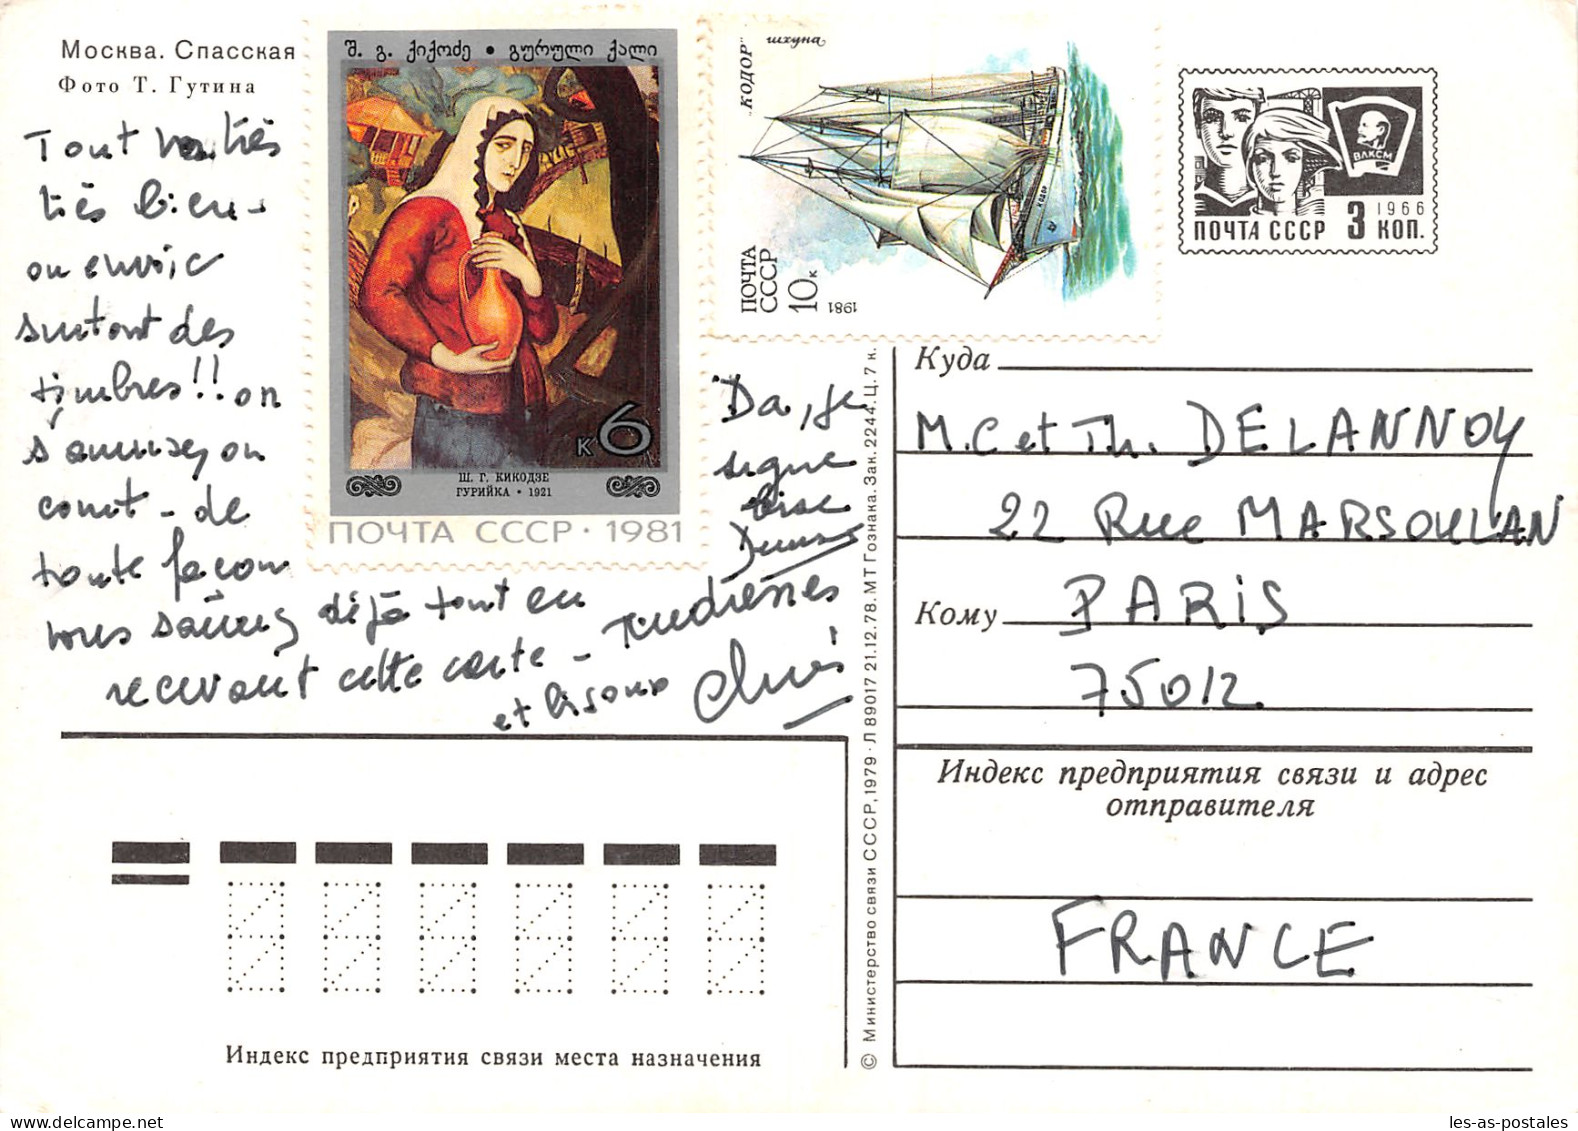 Москва. Спасская
Фото Т. Гутина
Tout va très
très bien -
on envoie
surtout des
timbres!! on
s'amuse, on
court - de
toute façon
vous saurez déjà tout en
recevant cette carte -
Tendresses
et bisous
Da, je
signe
bise
შ. გ. ქიქოძე • გურული ქალი
к6
Ш. Г. КИКОДЗЕ
ГУРИЙКА • 1921
ПОЧТА СССР · 1981
„КОДОР" шхуна
КОДОР
ПОЧТА
СССР
10к
1981
ВЛКСМ
1966
ПОЧТА СССР 3 КОП.
Куда
M.C et Th. DELANNOY
22 Rue MARSOULAN
Кому
PARIS
75012
Индекс предприятия связи и адрес
отправителя
FRANCE
© Министерство связи СССР, 1979 · Л 89017 21.12.78. МТ Гознака. Зак. 2244. Ц. 7 к.
Индекс предприятия связи места назначения
les-as-postales